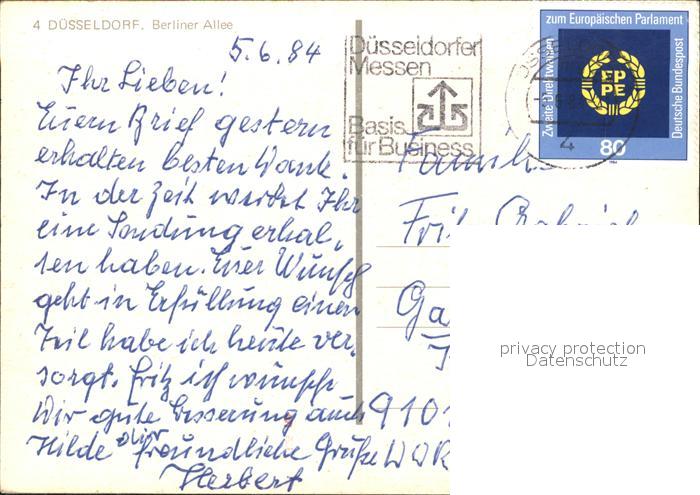 4 DÜSSELDORF. Berliner Allee
5.6.84
Ihr Lieben!
Euern Brief gestern
erhalten besten Dank.
In der Zeit werdet Ihr
eine Sendung erhal-
ten haben. Euer Wunsch
geht in Erfüllung einen
Teil habe ich heute ver-
sorgt. Fritz ich wünsche
Dir gute Besserung auch
Hilde
freundliche Grüße
Herbert
Düsseldorfer
Messen
Basis
für Business
zum Europäischen Parlament
Zweite Direktwahlen
Deutsche Bundespost
EP
PE
80
4
Familie
9101
privacy protection
Datenschutz